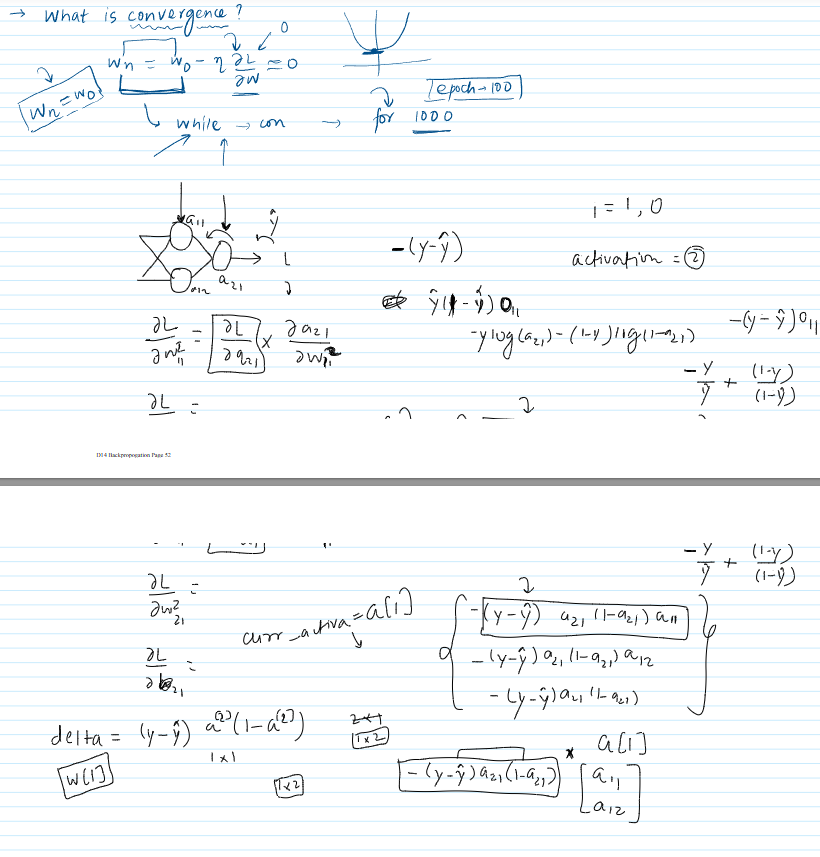 → What is convergence?
Wn = W0 - η ∂L/∂W ≈ 0
0
Wn = W0
epoch → 100
while → con → for 1000
a11
ŷ
a12
a21
L
1 = 1, 0
-(y-ŷ)
activation = 2
ŷ(1-ŷ) O11
-y log(a21) - (1-y) log(1-a21)
-(y-ŷ) O11
∂L/∂W²11 = ∂L/∂a21 × ∂a21/∂W²11
-y/ŷ + (1-y)/(1-ŷ)
∂L =
D14 Backpropogation Page 52
-y/ŷ + (1-y)/(1-ŷ)
∂L/∂W²21 =
curr_activa = a[1]
-(y-ŷ) a21 (1-a21) a11
∂L/∂b21 =
-(y-ŷ) a21 (1-a21) a12
-(y-ŷ) a21 (1-a21)
delta = (y-ŷ) a[2] (1-a[2])
2×1
1×2
1×1
W[1]
1×2
-(y-ŷ) a21 (1-a21) × a[1]
a11
a12